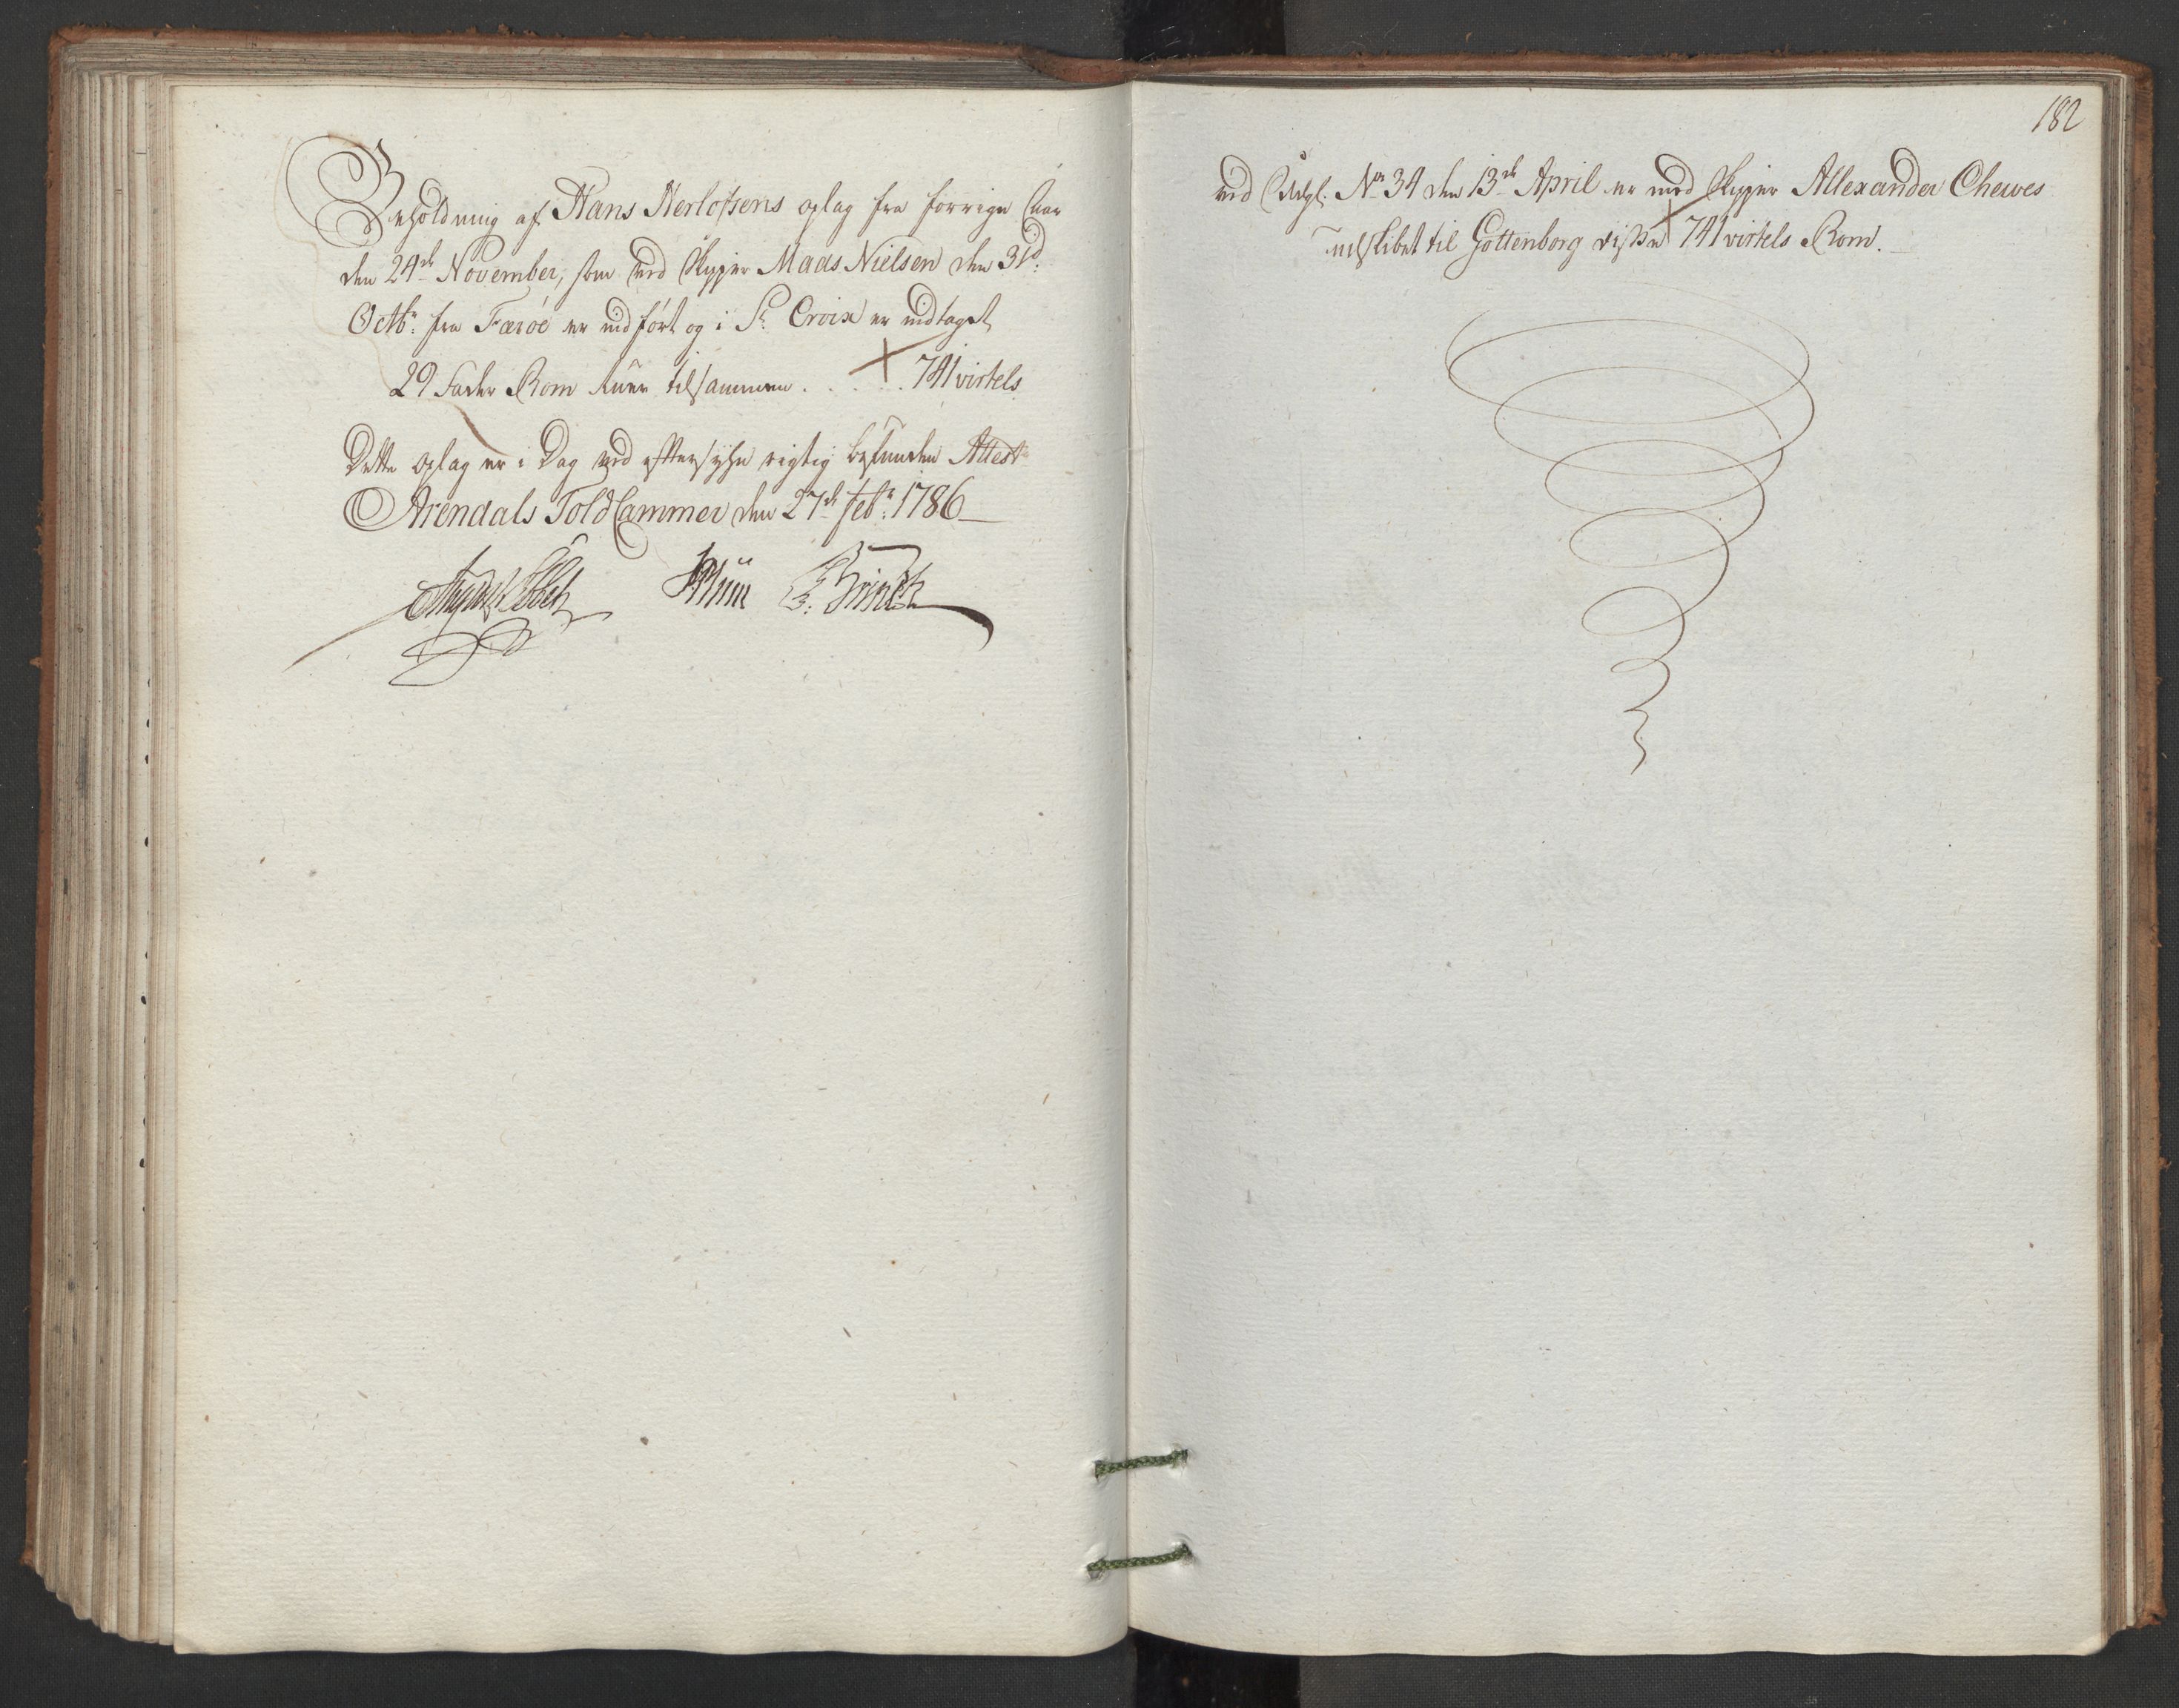 Beholdning af Hans Herlofsens oplag fra forrige Aar
den 24de November, som med Skipper Mads Nielsen den 31d:
Octbr: fra Færöe er indført og i St: Croix er indtaget
29 Fader Rom . . . tilsammen . . . . . . 741 virtels
Dette Oplag er i Dag ved eftersyn rigtig befunden Attest:
Arendals Told Cammer den 27de Febr: 1786
182
ved Udgl: No 34 den 13de April er med Skipper Allexander Chewes
udskibet til Gottenborg disse 741 virtels Rom.